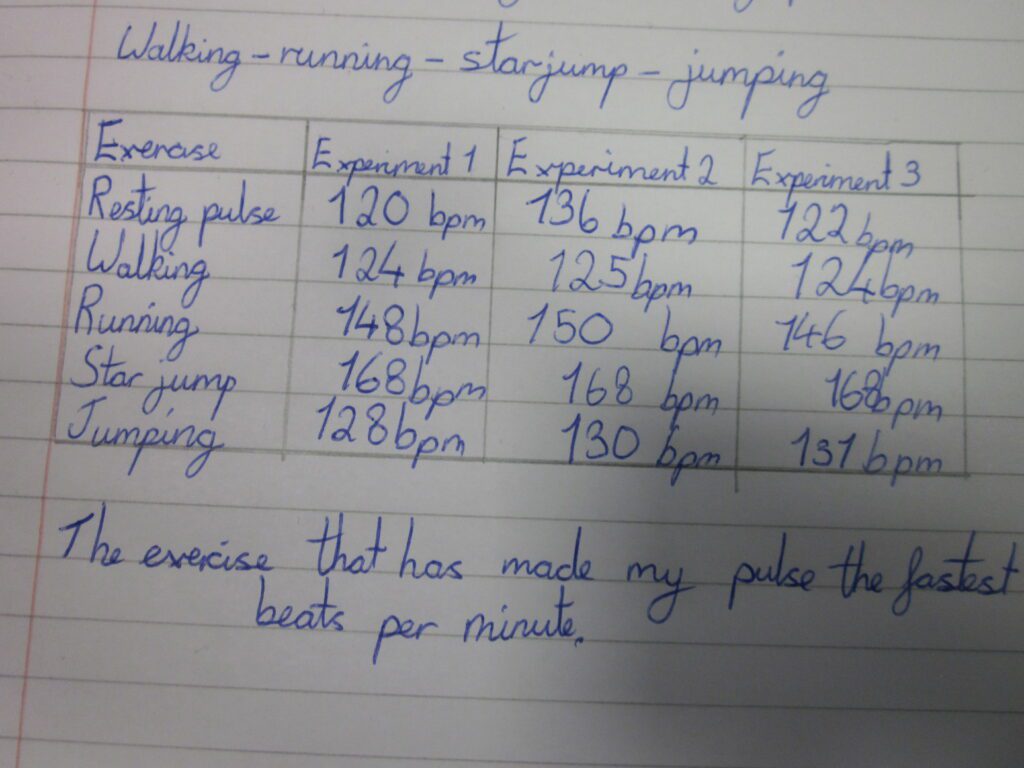 Walking - running - starjump - jumping
Exercise Experiment 1 Experiment 2 Experiment 3
Resting pulse 120 bpm 136 bpm 122 bpm
Walking 124 bpm 125 bpm 124 bpm
Running 148 bpm 150 bpm 146 bpm
Star jump 168 bpm 168 bpm 168 bpm
Jumping 128 bpm 130 bpm 131 bpm
The exercise that has made my pulse the fastest
beats per minute.